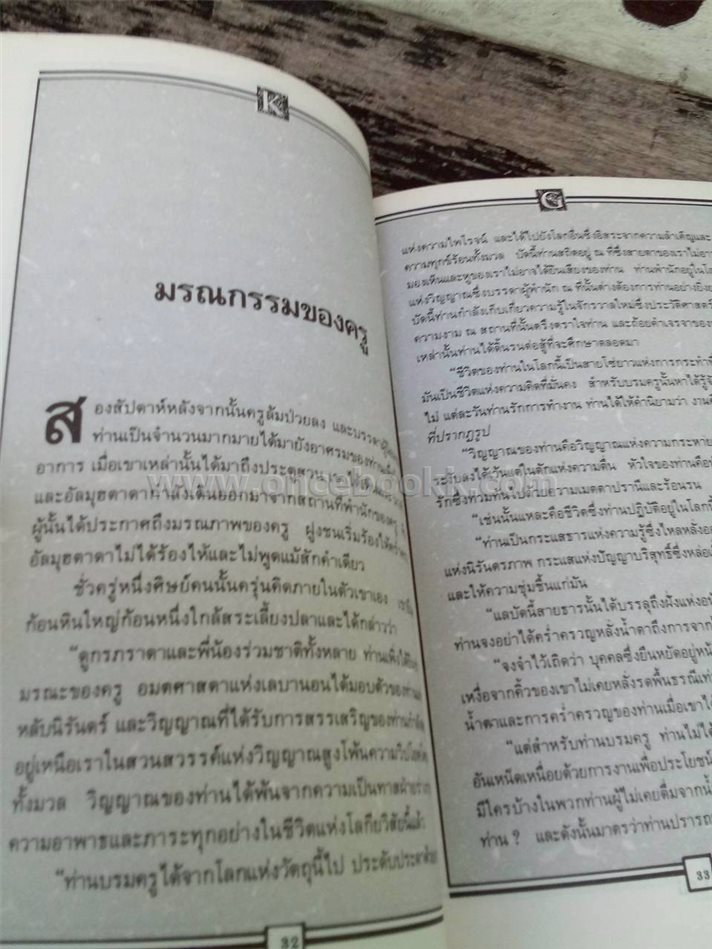 K
มรณกรรมของครู
สองสัปดาห์หลังจากนั้นครูล้มป่วยลง และบรรดา
ท่านเป็นจำนวนมากมายได้มายังอาศรมของท่าน
อาการ เมื่อเขาเหล่านั้นได้มาถึงประตูสวน
และอัลมุฮตาดากำลังเดินออกมาจากสถานที่พำนักของครู
ผู้นั้นได้ประกาศถึงมรณภาพของครู ฝูงชนเริ่มร้องไห้
อัลมุฮตาดาไม่ได้ร้องไห้และไม่พูดแม้สักคำเดียว
ชั่วครู่หนึ่งศิษย์คนนั้นครุ่นคิดภายในตัวเขาเอง
ก้อนหินใหญ่ก้อนหนึ่งใกล้สระเลี้ยงปลาและได้กล่าวว่า
“ดูกรภราดาและพี่น้องร่วมชาติทั้งหลาย ท่านเพิ่งได้
มรณะของครู อมตศาสดาแห่งเลบานอนได้มอบตัวของท่าน
หลับนิรันดร์ และวิญญาณที่ได้รับการสรรเสริญของท่าน
อยู่เหนือเราในสวนสวรรค์แห่งวิญญาณสูงโพ้นความ
ทั้งมวล วิญญาณของท่านได้พ้นจากความเป็นทาส
ความอาพาธและภาระทุกอย่างในชีวิตแห่งโลกียวิสัยนี้แล้ว
“ท่านบรมครูได้จากโลกแห่งวัตถุนี้ไป ประดับประดาด้วย
32
G
แห่งความไพโรจน์ และได้ไปยังโลกอื่นซึ่งอิสระจากความลำเค็ญและ
ความทุกข์ร้อนทั้งมวล บัดนี้ท่านสถิตอยู่ ณ ที่ซึ่งสายตาของเราไม่อาจ
มองเห็นและหูของเราไม่อาจได้ยินเสียงของท่าน ท่านพำนักอยู่ใน
แห่งวิญญาณซึ่งบรรดาผู้พำนัก ณ ที่นั้นต่างต้องการท่านอย่างยิ่ง
บัดนี้ท่านกำลังเก็บเกี่ยวความรู้ในจักรวาลใหม่ซึ่งประวัติศาสตร์
ความงาม ณ สถานที่นั้นตรึงตราใจท่าน และถ้อยคำเจรจาของ
เหล่านั้นท่านได้ดิ้นรนต่อสู้ที่จะศึกษาตลอดมา
“ชีวิตของท่านในโลกนี้เป็นสายโซ่ยาวแห่งการกระทำ
มันเป็นชีวิตแห่งความคิดที่มั่นคง สำหรับบรมครูนั้นหาได้รู้
ไม่ แต่ละวันท่านรักการทำงาน ท่านได้ให้คำนิยามว่า งาน
ที่ปรากฏรูป
“วิญญาณของท่านคือวิญญาณแห่งความกระหาย
ระงับลงได้เว้นแต่ในตักแห่งความตื่น หัวใจของท่านคือ
รักซึ่งท่วมท้นไปด้วยความเมตตาปรานีและร้อนรน
“เช่นนั้นแหละคือชีวิตซึ่งท่านปฏิบัติอยู่ในโลกนี้
“ท่านเป็นกระแสธารแห่งความรู้ซึ่งไหลหลั่ง
แห่งนิรันดรภาพ กระแสแห่งปัญญาบริสุทธิ์ซึ่งหล่อ
และให้ความชุ่มชื้นแก่มัน
“แลบัดนี้สายธารนั้นได้บรรลุถึงฝั่งแห่ง
ท่านจงอย่าได้คร่ำครวญหลั่งน้ำตาถึงการจาก
“จงจำไว้เถิดว่า บุคคลซึ่งยืนหยัดอยู่
เหงื่อจากคิ้วของเขาไม่เคยหลั่งรดพื้นธรณี
น้ำตาและการคร่ำครวญของท่านเมื่อเขาได้
“แต่สำหรับท่านบรมครู ท่านไม่ได้
อันเหน็ดเหนื่อยด้วยการงานเพื่อประโยชน์
มีใครบ้างในพวกท่านผู้ไม่เคยดื่มจากน้ำ
ท่าน ? และดังนั้นมาตรว่าท่านปรารถ
33
www.oncebookk.com